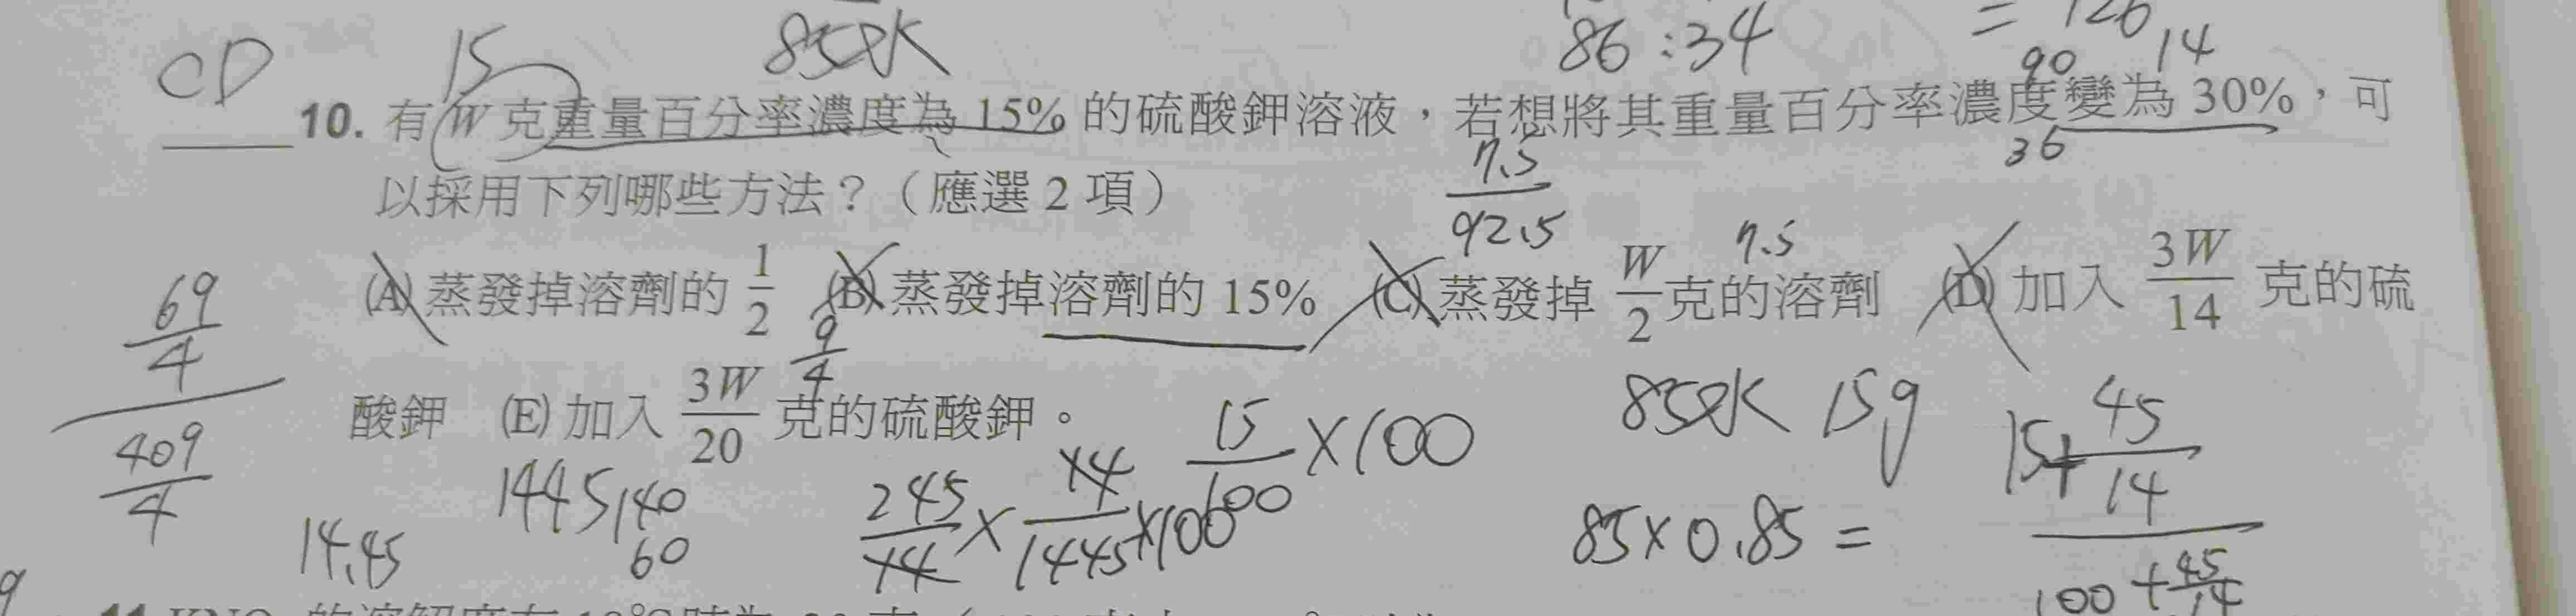 = 126
15 85水 86 : 34 90 14
CD
10. 有 W 克重量百分率濃度為 15% 的硫酸鉀溶液，若想將其重量百分率濃度變為 30%，可
36
以採用下列哪些方法？（應選 2 項）
7.5/92.5
7.5
(A) 蒸發掉溶劑的 1/2 (B) 蒸發掉溶劑的 15% (C) 蒸發掉 W/2 克的溶劑 (D) 加入 3W/14 克的硫
69/4
9/4
酸鉀 (E) 加入 3W/20 克的硫酸鉀。
409/4
15/100 ×100
85水 15g
15+ 45/14
100 + 45/14
1445 140
60
245/14 × 14/1445 ×100
85×0.85 =
14.45